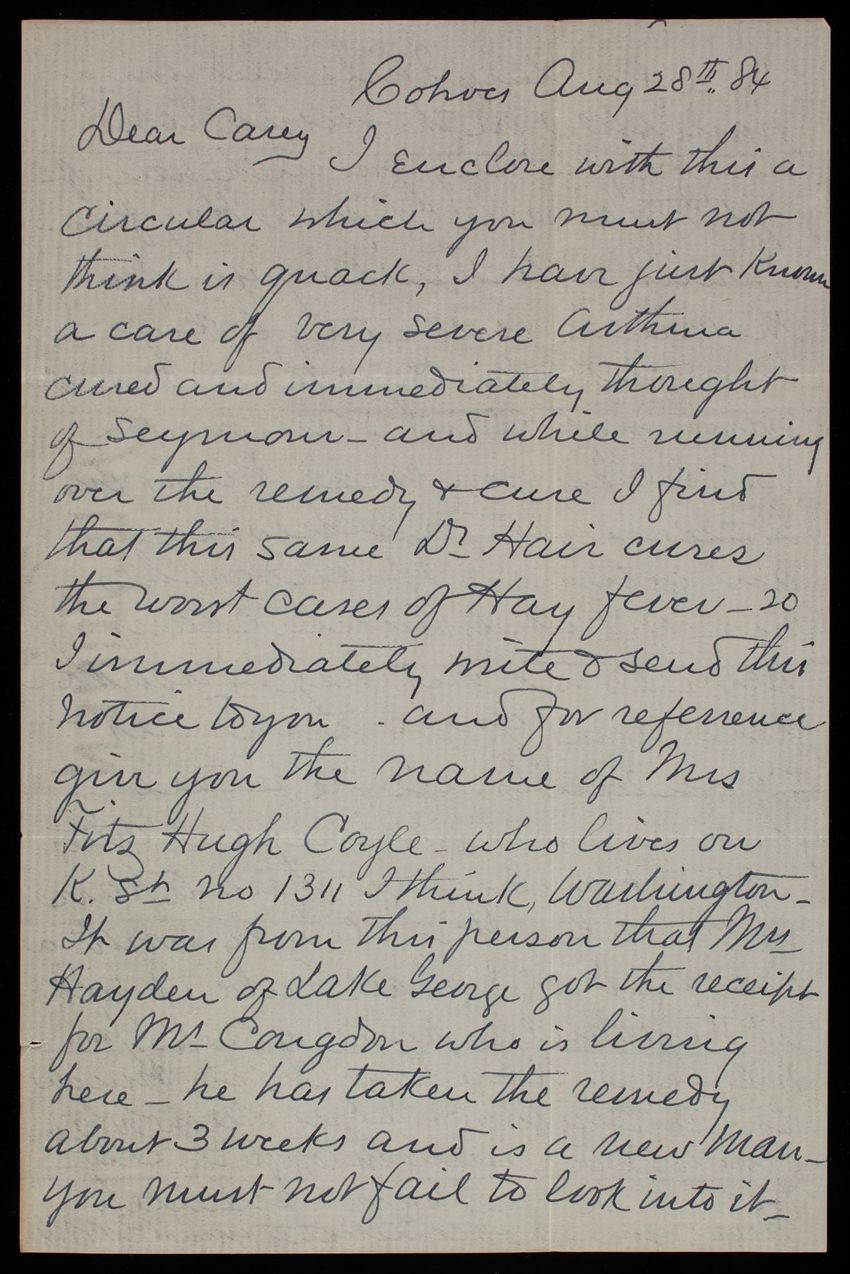 Cohoes Aug 28th. 84
Dear Casey
I Enclose with this a
circular which you must not
think is quack, I have just known
a case of very severe Asthma
cured and immediately thought
of Seymour - and while running
over the remedy & cure I find
that this same Dr Hair cures
the worst cases of Hay fever - so
I immediately write & send this
notice to you . and for referrence
give you the name of Mrs
Fitz Hugh Coyle - who lives on
K. St no 1311 I think, Washington -
It was from this person that Mrs
Hayden of Lake George got the receipt
for Mr Congdon who is living
here - he has taken the remedy
about 3 weeks and is a new man -
you must not fail to look into it -